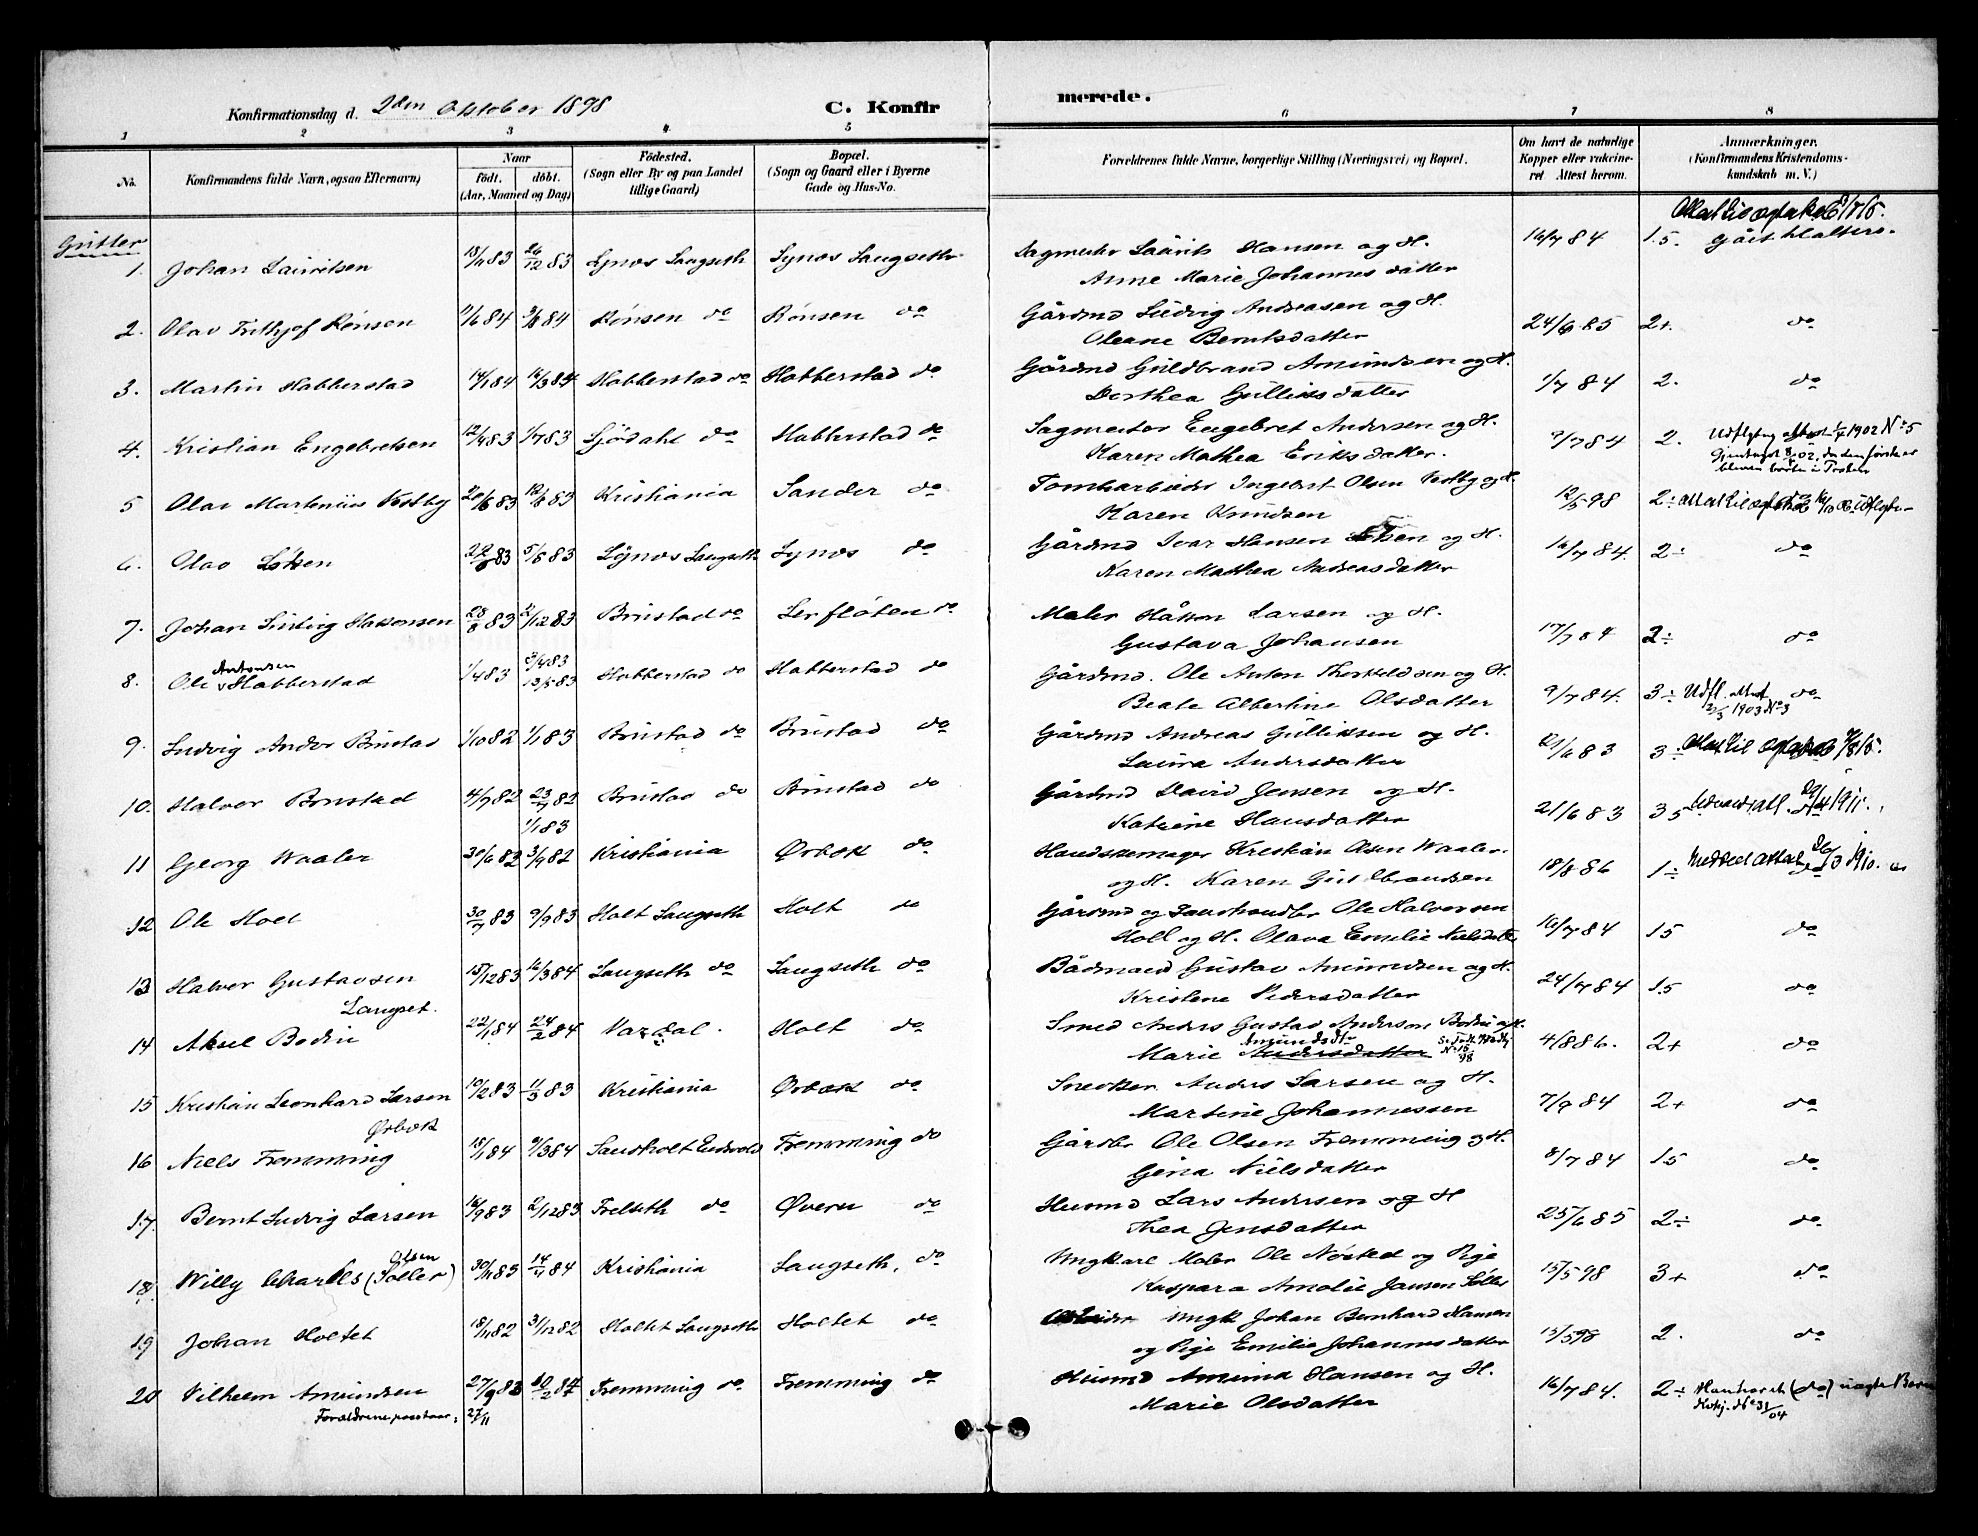 Konfirmationsdag d. 2den Oktober 1898
C. Konfirmerede.
1 2 3 4 5 6 7 8
No. Konfirmandens fulde Navn, ogsaa Efternavn) Naar født. døbt. (Aar, Maaned og Dag) Fødested. (Sogn eller By og paa Landet tillige Gaard) Bopæl. (Sogn og Gaard eller i Byerne Gade og Hus-No. Forældrenes fulde Navne, borgerlige Stilling (Næringsvei) og Bopæl. Om havt de naturlige Kopper eller vakcineret Attest herom. Anmærkninger. (Konfirmandens Kristendomskundskab m. V.)
Gutter
1. Johan Lauritsen 18/11 83 26/12 83 Lynæs Langseth Lynæs Langseth Sagmester Laurits Hansen og H. 16/7 84 1.5. gået Halters
Anne Marie Johannesdatter
2. Olav Frithjof Rønsen 84 3/8 84 Rønsen do Rønsen do Gårdmd Ludvig Andreasen og H. 24/6 85 2+ do
Oleane Berntsdatter
3. Martin Habberstad 14/1 84 16/3 84 Habberstad do Habberstad do Gårdmd Guldbrand Amundsen og H. 1/7 84 2. do
Dorthea Gulliksdatter
4. Kristian Engebretsen 12/4 83 1/7 83 Sjødahl do Habberstad do Sagmester Engebret Andersen og H. 9/7 84 2. Udflytng attest 1/4 1902 No 5
Karen Mathea Eriksdatter.
5 Olav Martenius Vestby 20/6 83 12/8 83 Kristiania Sander do Tomtarbeider Ingebret Olsen Vestby og H. 12/5 98 2÷
Karen Knudsen
6. Olav Løken 83 5/8 83 Lynæs Langseth Lynæs do Gårdmd Ivar Hansen Løken og H. 16/7 84. 2÷ do
Karen Mathea Andreasdatter
7. Johan Ludvig Hakonsen 28/8 83 2/12 83 Brustad do Lerfløten do Maler Håkon Larsen og H. 17/7 84 2÷ do
Gustava Johansen
8. Ole Antonsen Habberstad 1/4 83 13/5 83 Habberstad do Habberstad do Gårdmd. Ole Anton Thorkeldsen og H. 9/7 84. 3÷ Udfl. attest 2/3 1903 No 3 do
Beate Albertine Olsdatter
9. Ludvig Andor Brustad 1/10 82 1/1 83 Brustad do Brustad do Gårdmd Andreas Gulliksen og H. 21/6 83 3÷
Laura Andersdatter
10. Halvor Brustad 4/7 82 23/7 82 Brustad do Brustad do Gårdmd David Jensen og H. 21/6 83 3.5
1/1 83 Katrine Hansdatter
11 Georg Waaler 30/6 82 3/9 82 Kristiania Ørbæk do Handskemager Kristian Olsen Waaler 18/8 86 1÷
og H. Karen Guldbrandsen
12 Ole Holt 30/7 83 9/9 83 Holt Langseth Holt do Gårdmd og Landhandler Ole Halvorsen 16/7 84 1.5 do
Holt og H. Olava Emilie Nielsdatter
13 Halvor Gustavsen 15/12 83 16/3 84 Langseth do Langseth do Bådmand Gustav Amundsen og H. 24/7 84 1.5 do
Langset. Kristine Pedersdatter
14 Aksel Bodin 22/1 84 24/2 84 Vardal. Holt do Smed Anders Gustav Anderson Bodin og H. 4/8 86. 2+ do
Marie Amundsdtr Andersdatter
15 Kristian Leonhard Larsen 10/2 83 11/3 83 Kristiania Ørbæk do Snedker Anders Larsen og H. 7/9 84 2+ do
Ørbæk Martine Johannessen
16 Niels Fremming 18/1 84 9/3 84 Sandholt Eidsvold Fremming do Gårdbr Ole Olsen Fremming og H. 8/7 84 1.5 do
Gina Nielsdatter
17. Bernt Ludvig Larsen 16/9 83 2/12 83 Frelseth do Øveru do Husmd Lars Andersen og H 25/6 85 2÷ do
Thea Jensdatter
18. Willy Charles Olsen (Søller) 30/11 83 14/4 84 Kristiania Langseth, do Ungkarl Maler Ole Nøsted og Pige 15/5 98 3+ do
Kaspara Amalie Jansen Søller
19 Johan Holtet 18/11 82 31/12 82 Holtet Langseth Holtet do Arbeider Ungk Johan Bernhard Hansen 15/5 98 2. do
og Pige Emilie Johannesdatter
20 Vilhelm Amundsen 27/9 83 10/2 84 Fremming do. Fremming do Husmd Amund Hansen og H. 16/7 84. 2÷
Forældrene paastaar: 27/11 Marie Olsdatter